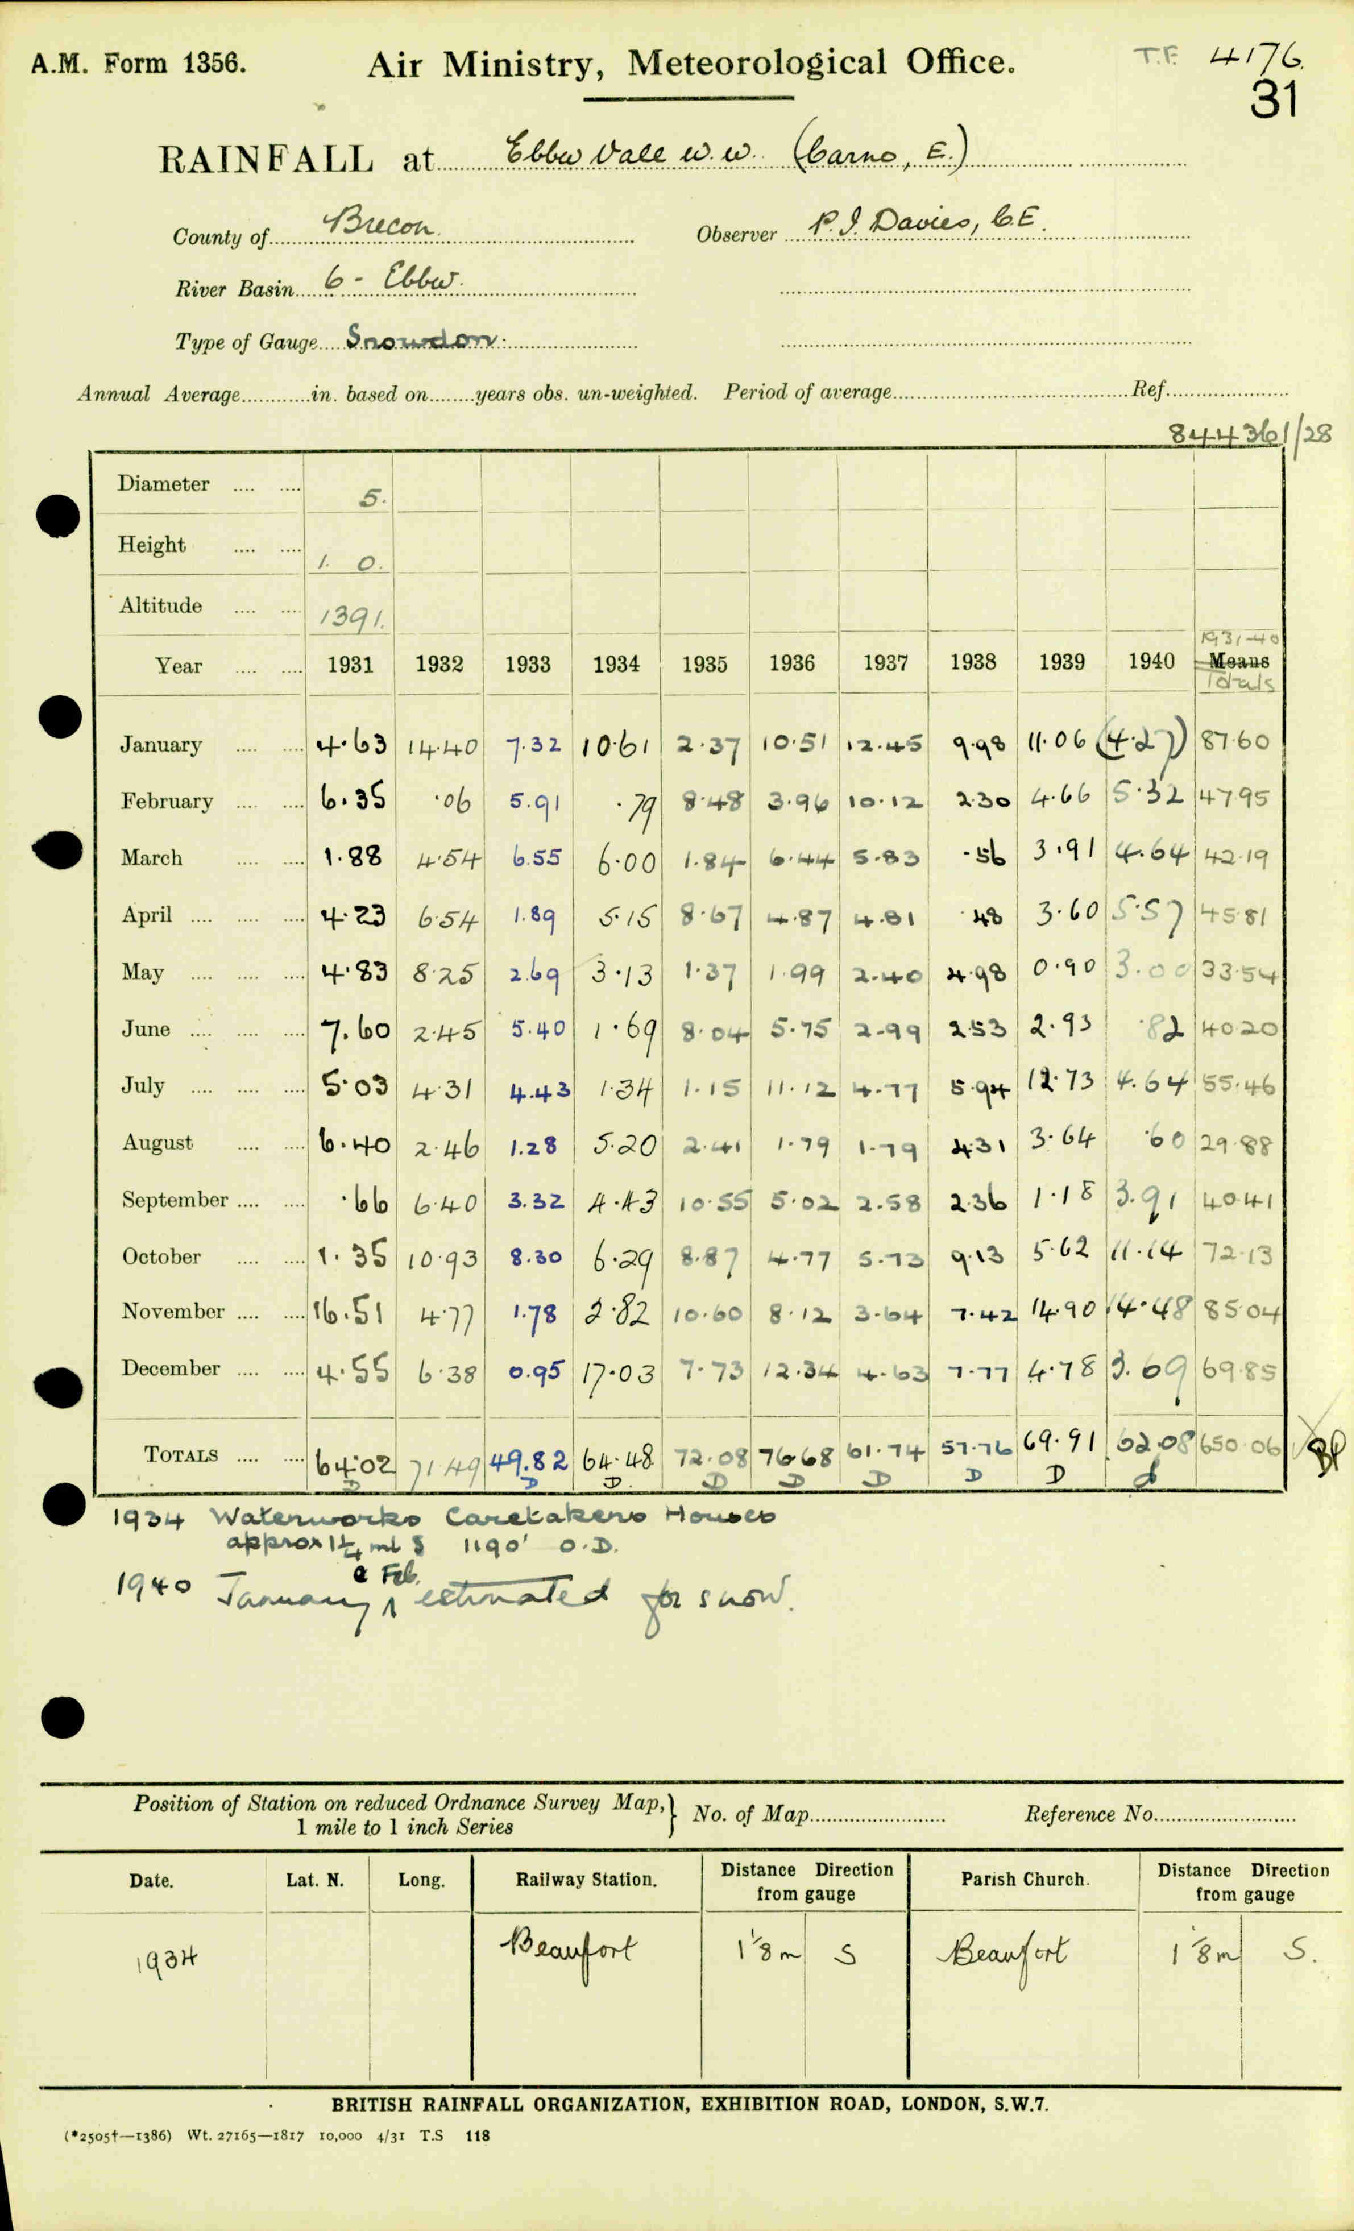 A.M. Form 1356. Air Ministry, Meteorological Office. T.F. 4176.
31
RAINFALL at Ebbw Vale W.W. (Carno, E.)
County of Brecon. Observer P.J. Davies, C.E.
River Basin 6 - Ebbw.
Type of Gauge Snowdon.
Annual Average in. based on years obs. un-weighted. Period of average Ref.
844361/28
Diameter 5.
Height 1. 0.
Altitude 1391.
1931-40
Year 1931 1932 1933 1934 1935 1936 1937 1938 1939 1940 Means
Totals
January 4.63 14.40 7.32 10.61 2.37 10.51 12.45 9.98 11.06 (4.27) 87.60
February 6.35 .06 5.91 .79 8.48 3.96 10.12 2.30 4.66 5.32 47.95
March 1.88 4.54 6.55 6.00 1.84 6.44 5.83 .56 3.91 4.64 42.19
April 4.23 6.54 1.89 5.15 8.67 4.87 4.81 .48 3.60 5.57 45.81
May 4.83 8.25 2.69 3.13 1.37 1.99 2.40 4.98 0.90 3.00 33.54
June 7.60 2.45 5.40 1.69 8.04 5.75 2.99 2.53 2.93 .82 40.20
July 5.03 4.31 4.43 1.34 1.15 11.12 4.77 5.94 12.73 4.64 55.46
August 6.40 2.46 1.28 5.20 2.41 1.79 1.79 4.31 3.64 .60 29.88
September .66 6.40 3.32 4.43 10.55 5.02 2.58 2.36 1.18 3.91 40.41
October 1.35 10.93 8.30 6.29 8.87 4.77 5.73 9.13 5.62 11.14 72.13
November 16.51 4.77 1.78 2.82 10.60 8.12 3.64 7.42 14.90 14.48 85.04
December 4.55 6.38 0.95 17.03 7.73 12.34 4.63 7.77 4.78 3.69 69.85
TOTALS 64.02 71.49 49.82 64.48 72.08 76.68 61.74 57.76 69.91 62.08 650.06 BP
D D D D D D D D d
1934 Waterworks Caretakers Houses
approx 1¼ ml S 1190' O.D.
& Feb.
1940 January ʌ estimated for snow.
Position of Station on reduced Ordnance Survey Map,} No. of Map Reference No.
1 mile to 1 inch Series
Date. Lat. N. Long. Railway Station. Distance Direction Parish Church. Distance Direction
from gauge from gauge
1934 Beaufort 1·8 m S Beaufort 1·8 m S.
BRITISH RAINFALL ORGANIZATION, EXHIBITION ROAD, LONDON, S.W.7.
(*2505†—1386) Wt. 27165—1817 10,000 4/31 T.S 118